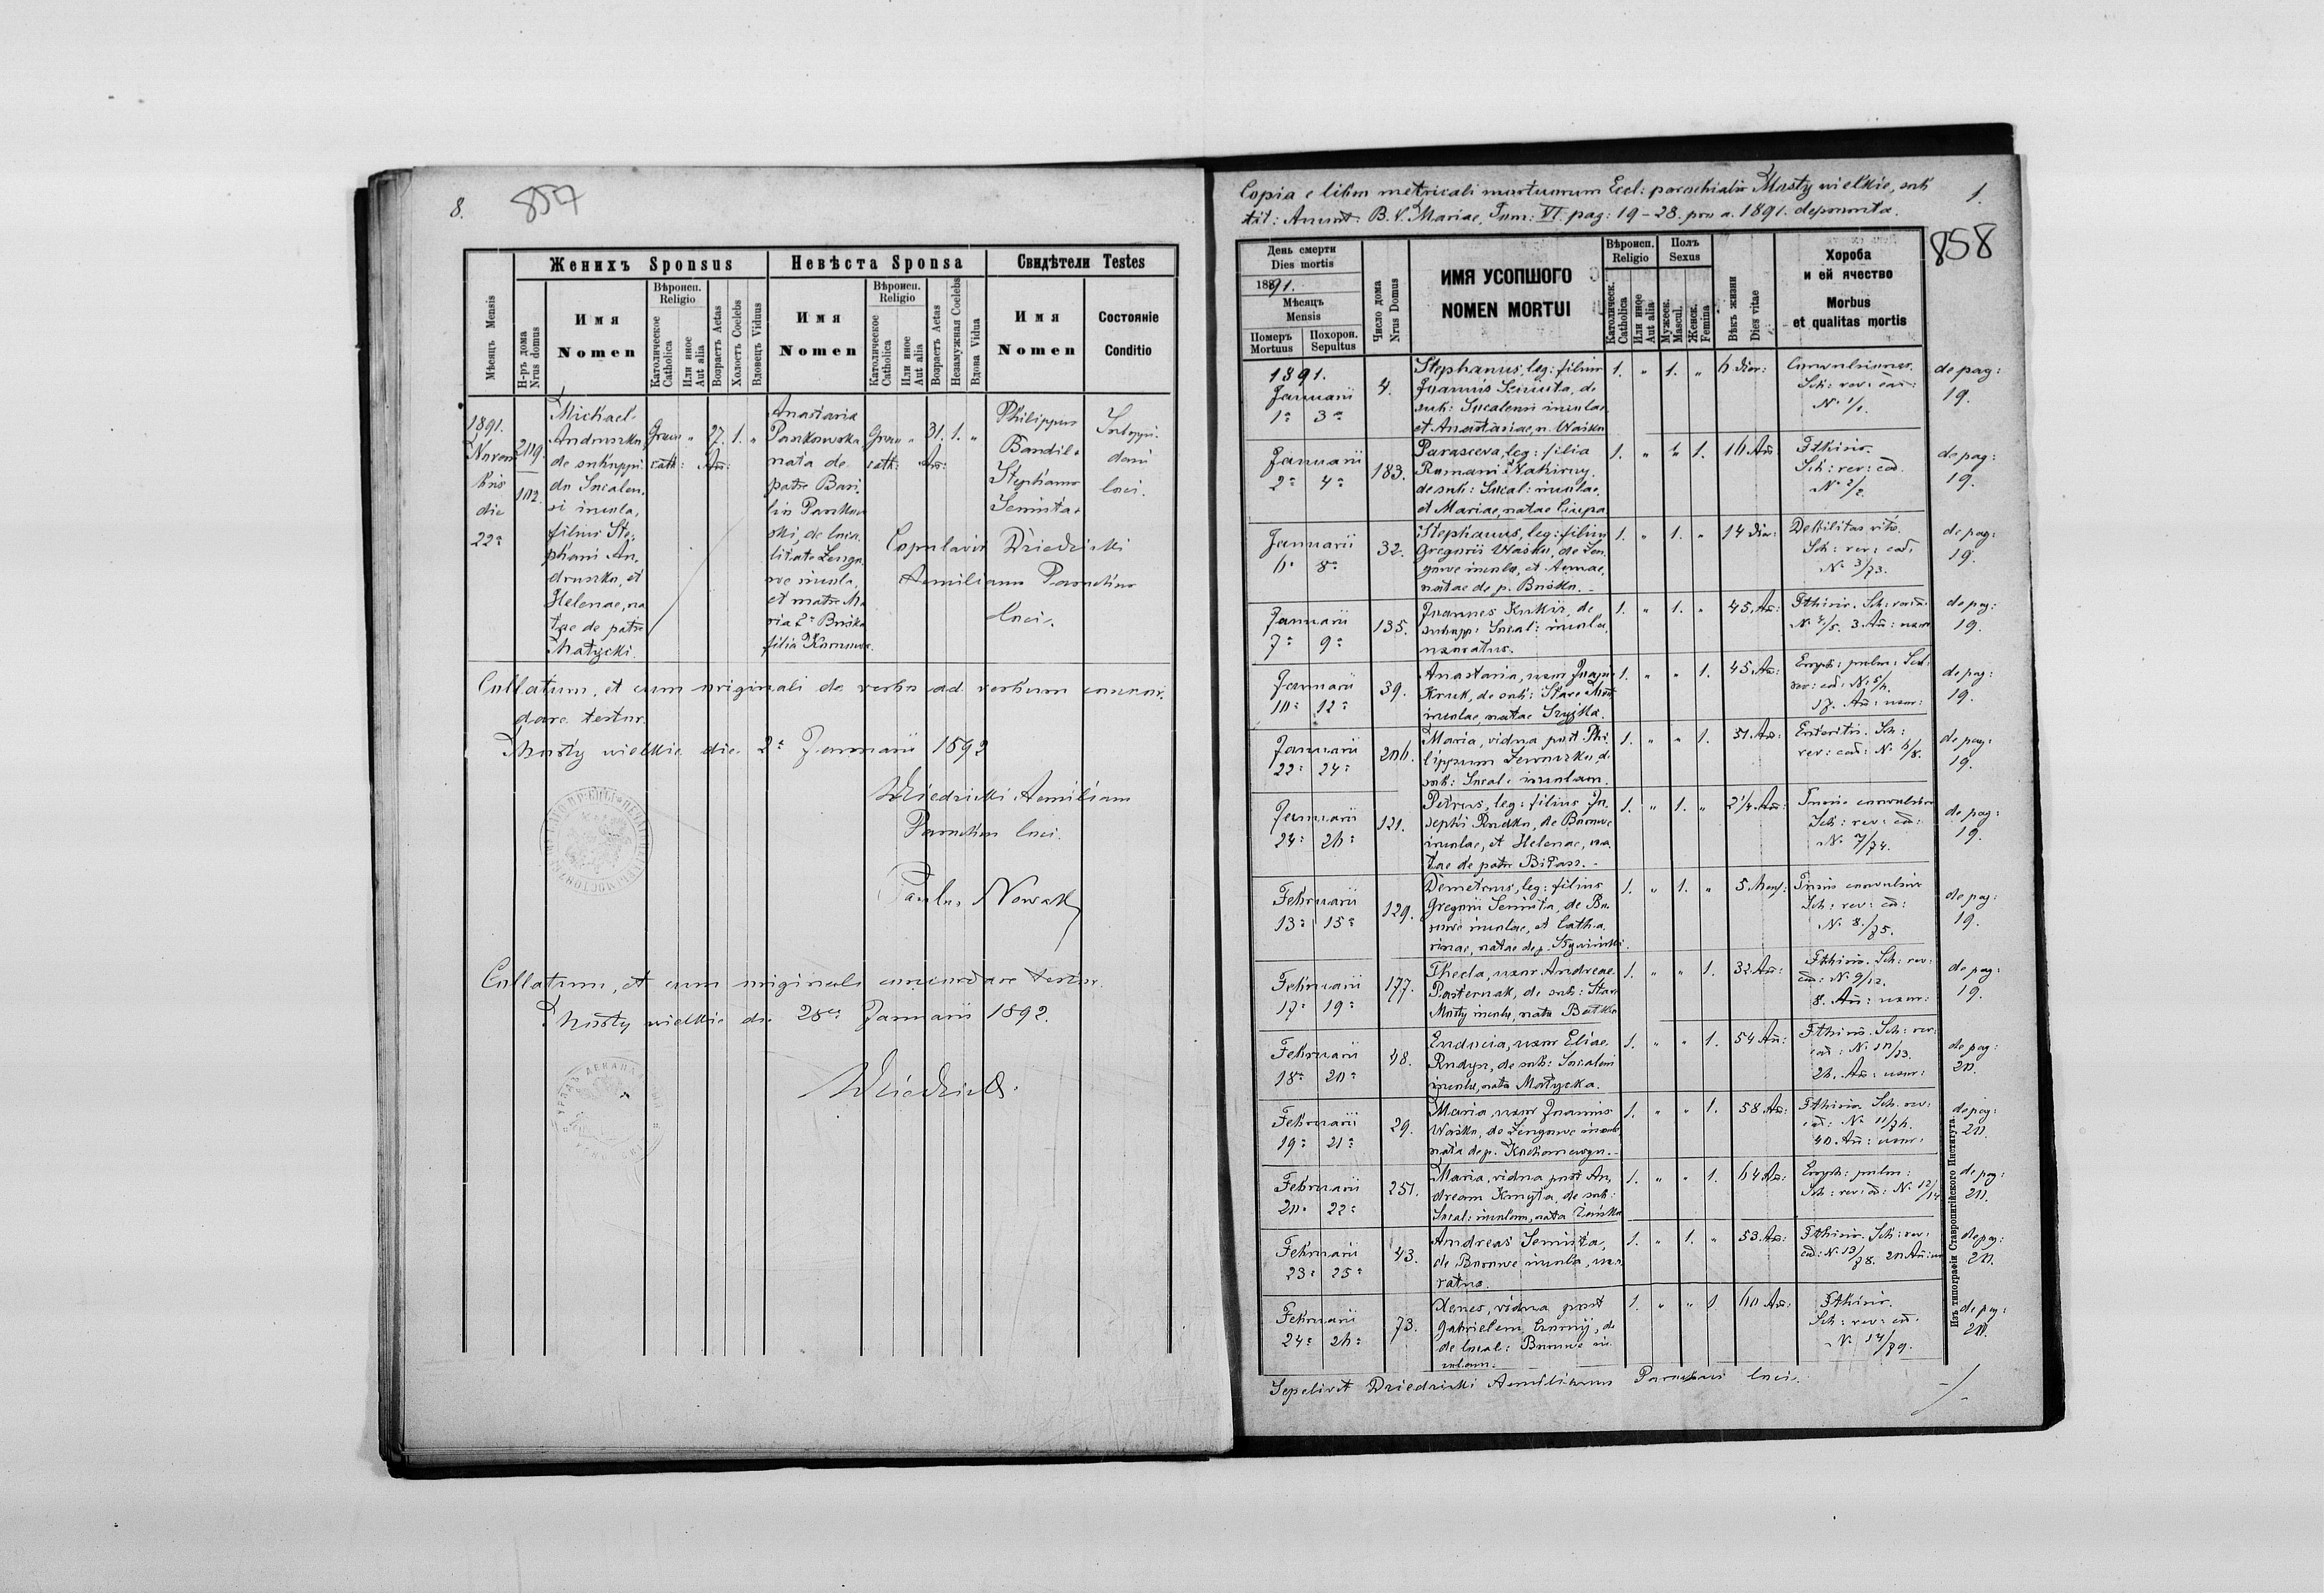 8.
857
Женихъ Sponsus
Невѣста Sponsa
Свидѣтели Testes
Мѣсяцъ Mensis
Н-ръ дома Nrus domus
Имя Nomen
Вѣроисп. Religio
Католическое Catholica
Или иное Aut alia
Возрастъ Aetas
Холостъ Coelebs
Вдовецъ Viduus
Имя Nomen
Вѣроисп. Religio
Католическое Catholica
Или иное Aut alia
Возрастъ Aetas
Незамужная Coelebs
Вдова Vidua
Имя Nomen
Состояніе Conditio
1891.
Novem
bris
die
22a
209
102.
Michael
Andruszko
de subuppi
do Socalen
si incola,
filius Ste
phani An
druszko, et
Helenae, na
tae de patre
Matycki.
Graeco cath:
"
27. An:
1.
"
Anastasia
Pankowska
nata de
patre Basi
lio Pankow
ski, de loca
litate
incola,
et matre Ma
ria
filia
Graeco cath:
"
31. An:
1.
"
Philippus
Bandil
Stephanus
Seniuta
Suboppi
dani
loci.
Copulavit Dziedzicki
Aemilianus Parochus
loci.
Collatum, et cum originali de verbo ad verbum concor
dare testor.
Mosty wielkie die 2a Januarii 1892
Dziedzicki Aemilian
Parochus loci.
Paulus Nowak
Collatum, et cum originali concordare testor.
Mosty wielkie die 28a Januarii 1892.
Dziedzicki
Copia e libro metricali mortuorum Eccl: parochialis Mosty wielkie, sub
tit: Annunt: B. V. Mariae, Tom: VI. pag: 19-28. pro a. 1891. deprompta.
1.
858
День смерти Dies mortis
1891.
Мѣсяцъ Mensis
Померъ Mortuus
Похорон. Sepultus
Число дома Nrus Domus
ИМЯ УСОПШОГО
NOMEN MORTUI
Вѣроисп. Religio
Католическ. Catholica
Или иное Aut alia
Полъ Sexus
Мужеск. Mascul.
Женск. Femina
Вѣкъ жизни Dies vitae
Хороба
и ей ячество
Morbus
et qualitas mortis
1891.
Januarii
1a 3a
4.
Stephanus, leg: filius
Joannis Seniuta, de
sub: Socalensi incolae
et Anastasiae, n. Wasko
1. " 1. " 6 dier:
Convulsiones.
Sch: rev: cad:
No 1/1.
de pag: 19.
Januarii
2a 4a
183.
Parasceva, leg: filia
Romani
de sub: Socal: incolae,
et Mariae, natae
1. " " 1. 16 An:
Pthisis.
Sch: rev: cad.
No 2/2.
de pag: 19.
Januarii
6a 8a
32.
Stephanus, leg: filius
Gregorii Wasko, de
incolae, et Annae,
natae de p. Busko.
1. " 1. " 14 dier:
Debilitas vitae.
Sch: rev: cad.
No 3/73.
de pag: 19.
Januarii
7a 9a
135.
Joannes Kukis, de
suburb: Socal: incola,
uxoratus.
1. " 1. " 45. An:
Pthisis. Sch: rev:
No 4/5. 3. An: uxor
de pag: 19.
Januarii
10a 12a
39.
Anastasia, uxor
Kruk, de sub: Stare Mosty
incolae, natae Szyjka.
1. " " 1. 45. An:
Emph: pulm: Sch:
rev: cad: No 5/6.
17. An: uxor:
de pag: 19.
Januarii
22a 24a
206.
Maria, vidua post Phi
lippum de
sub: Socal: incolam.
1. " " 1. 51. An:
Enteritis. Sch:
rev: cad: No 6/8.
de pag: 19.
Januarii
24a 26a
121.
Petrus, leg: filius Jo
sephi Rudko, de Borowe
incolae, et Helenae, na
tae de patre
1. " 1. " 2 1/4 An:
Tussis convulsiva
Sch: rev: cad:
No 7/74.
de pag: 19.
Februarii
13a 15a
129.
Demetrius, leg: filius
Gregorii Seniuta, de Bo
rowe incolae, et Catha
rinae, natae de p.
1. " 1. " 5 Mens:
Tussis convulsiva
Sch: rev: cad:
No 8./75.
de pag: 19.
Februarii
17a 19a
177.
Thecla, uxor Andreae
Pasternak, de sub: Stare
Mosty incola, nata
1. " " 1. 32 An:
Pthisis. Sch: rev:
cad: No 9/12.
8. An: uxor:
de pag: 19.
Februarii
18a 20a
48.
Eudocia, uxor Eliae
Rudyn, de sub: Socalensi
incola, nata Matycka.
1. " " 1. 54 An:
Pthisis. Sch: rev:
cad: No 10/13.
26. An: uxor:
de pag: 20.
Februarii
19a 21a
29.
Maria, uxor Joannis
Wasko, de incola
nata de p.
1. " " 1. 58 An:
Pthisis Sch: rev:
cad: No 11/76.
40. An: uxor:
de pag: 20.
Februarii
20a 22a
251.
Maria, vidua post An
dream Kmyta, de sub:
Socal: incolam, nata
1. " " 1. 64 An:
Emph: pulm:
Sch: rev: cad: No 12/14
de pag: 20.
Februarii
23a 25a
43.
Andreas Seniuta,
de Borowe incola, uxo
ratus.
1. " 1. " 53 An:
Pthisis. Sch: rev:
cad: No 13/78. 20 An: ux
de pag: 20.
Februarii
24a 26a
73.
Xenes, vidua post
Gabrielem Czornij, de
de local: Borowe in
colam.
1. " " 1 60 An:
Pthisis.
Sch: rev: cad.
No 14/79.
de pag: 20.
Sepelivit Dziedzicki Aemilianus Parochus loci.
Изъ типографіи Ставропигійского Института.